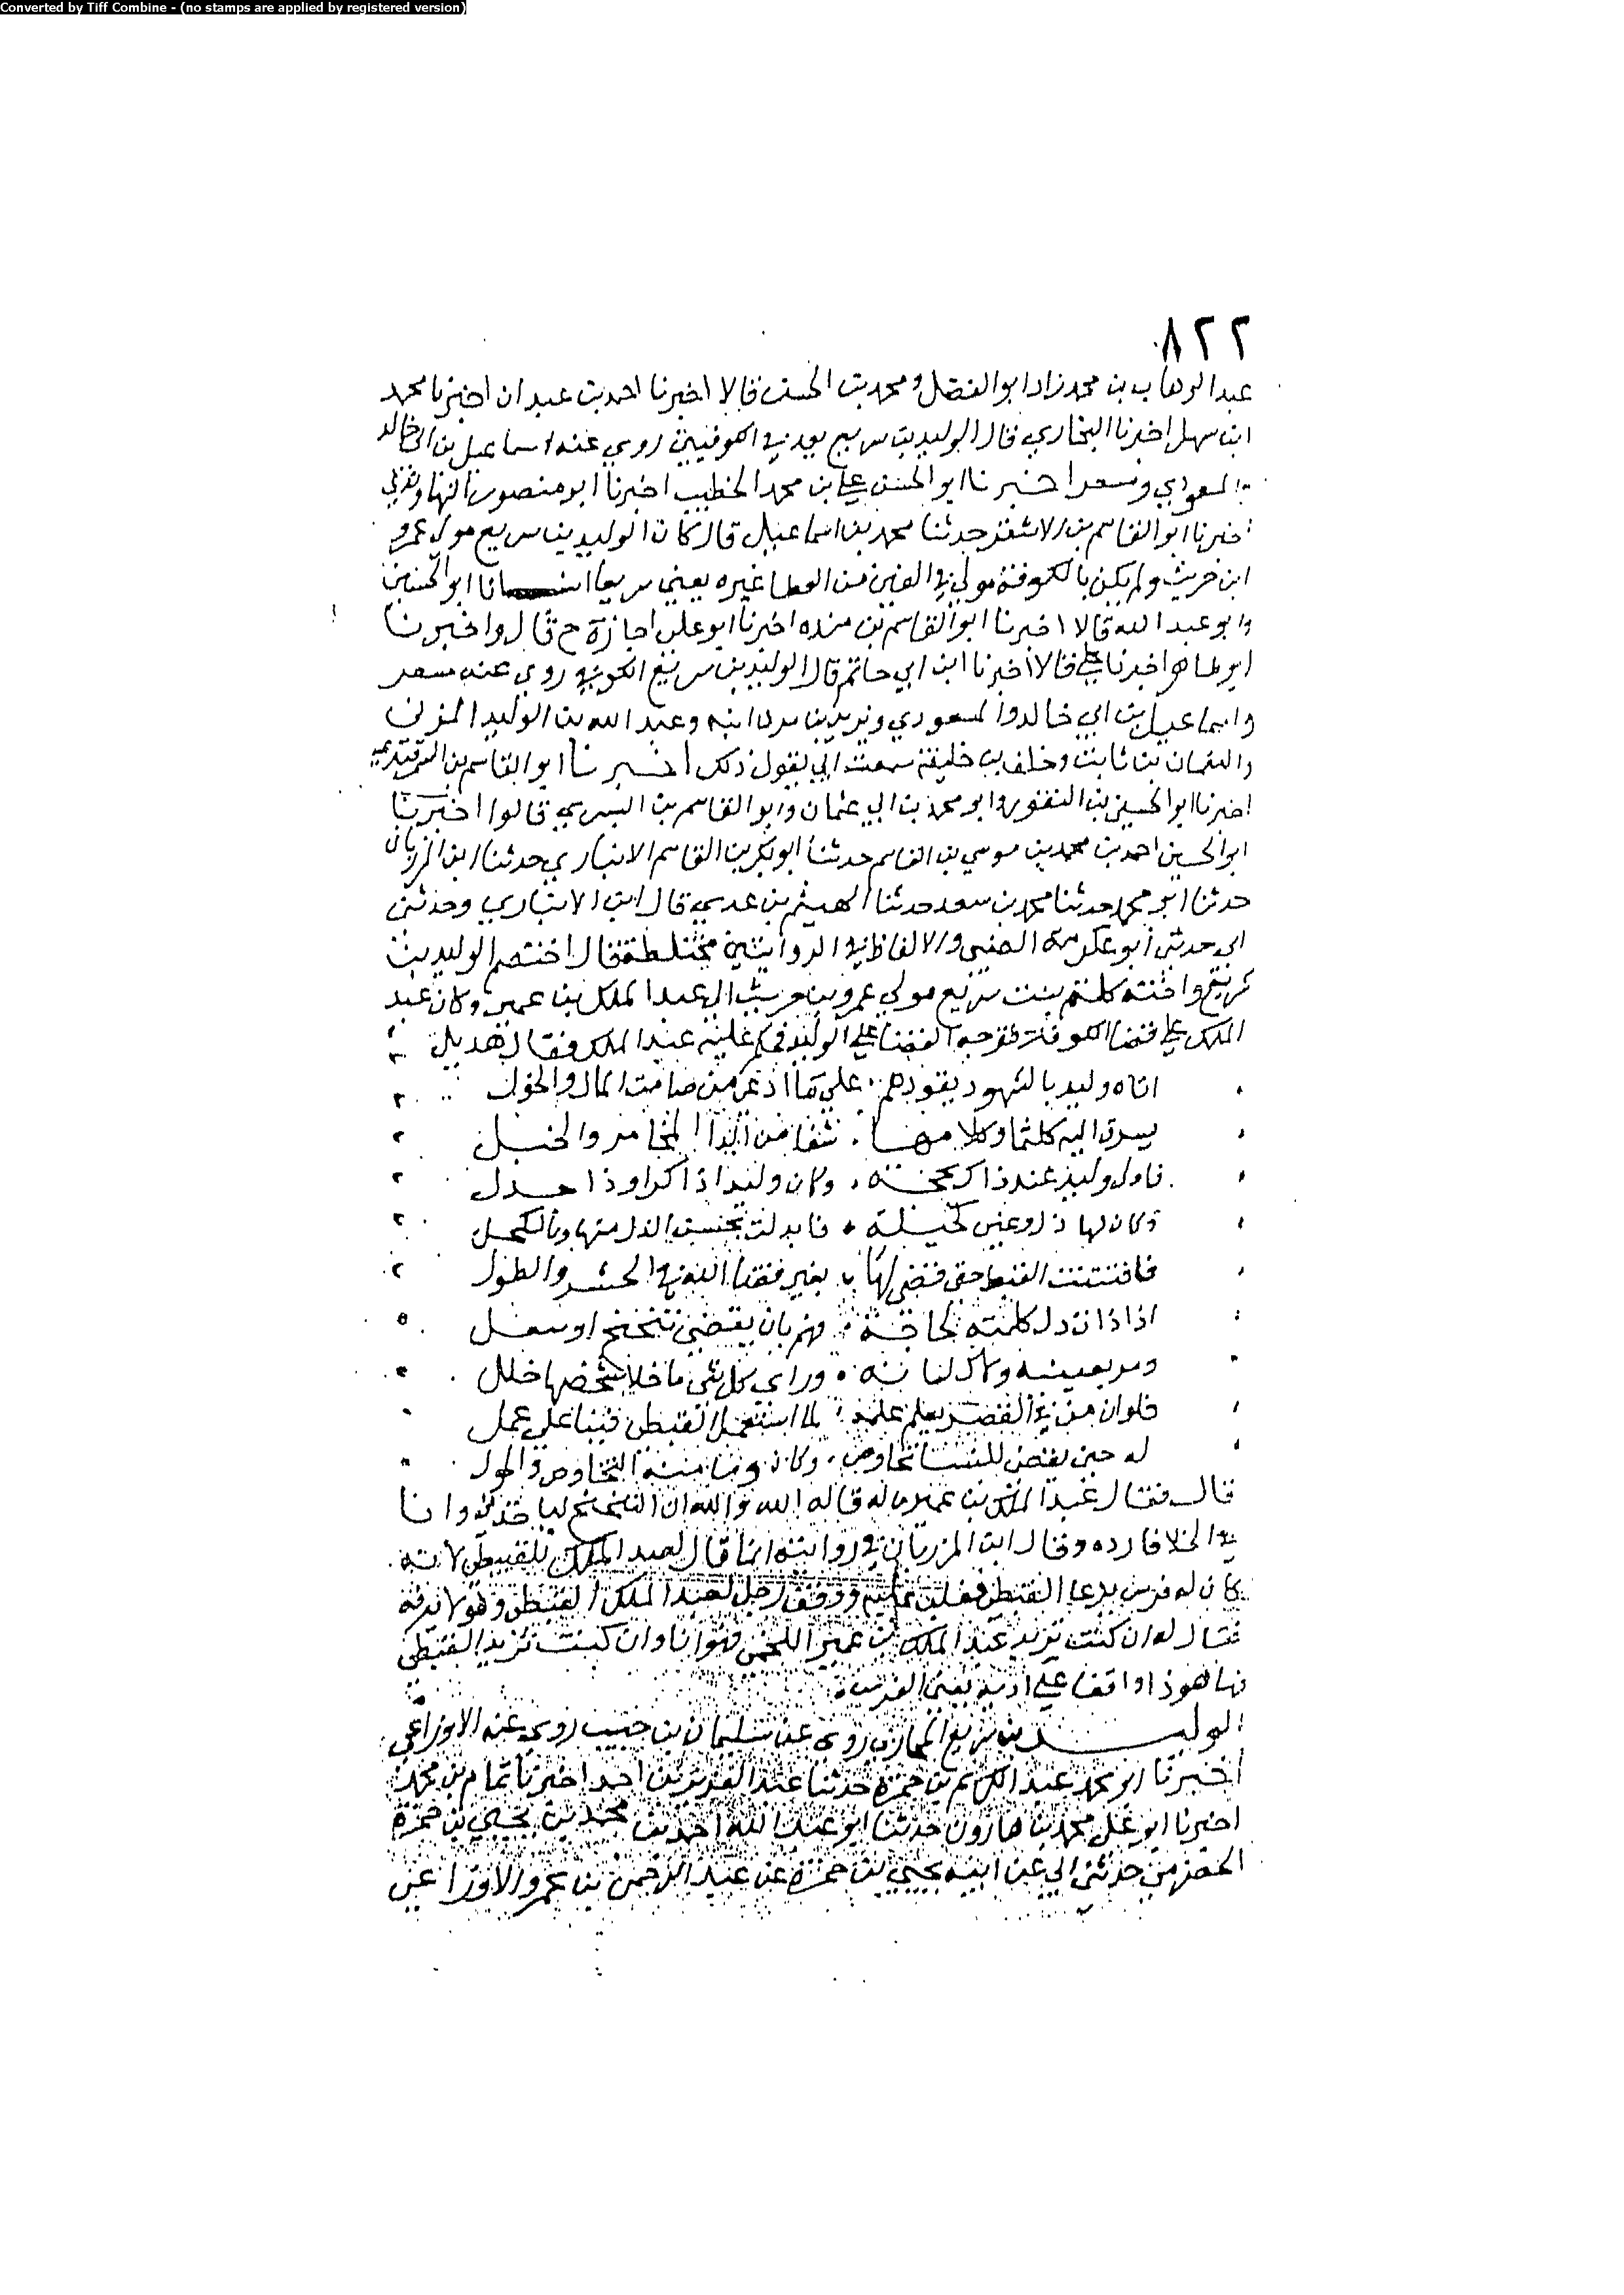 Converted by Tiff Combine - (no stamps are applied by registered version)
٨٢٢
عبد الوهاب بن محمد زاد ابو الفضل و محمد بن الحسن قالا اخبرنا احمد بن عبدان اخبرنا محمد
ابن سهل اخبرنا البخاري قال الوليد بن سريع يعد في الكوفيين روي عنه اسماعيل بن ابي خالد
المسعودي ومسعر اخبرنا ابو الحسن علي بن محمد الخطيب اخبرنا ابو منصور النهاوندي
اخبرنا ابو القاسم بن الاشقر حدثنا محمد بن اسماعيل قال كان الوليد بن سريع مولي عمرو
ابن حريث ولم يكن بالكوفة مولي في الفين من العطا غيره يعني سريعا انبانا ابو الحسين
وابو عبد الله قالا اخبرنا ابو القاسم بن منده اخبرنا ابو علي اجازة ح قال واخبرنا
ابو طاهر اخبرنا علي قالا اخبرنا ابن ابي حاتم قال الوليد بن سريع الكوفي روي عنه مسعر
واسماعيل بن ابي خالد والمسعودي ويزيد بن مردانبه وعبد الله بن الوليد المزني
والنعمان بن ثابت وخلف بن خليفة سمعت ابي يقول ذلك اخبرنا ابو القاسم بن السمرقندي
اخبرنا ابو الحسين بن النقور وابو محمد بن ابي عثمان وابو القاسم بن البسري قالوا اخبرنا
ابو الحسين احمد بن محمد بن موسي بن القاسم حدثنا ابو بكر بن القاسم الانباري حدثنا ابن المرزبان
حدثنا ابو محمد حدثنا محمد بن سعد حدثنا الهيثم بن عدي قال ابن الانباري وحدثني
ابي حدثني ابو عكرمة الضبي والالفاظ في الروايتين مختلطة قال اختصم الوليد بن
سريع واخته كلثم بنت سريع مولي عمرو بن حريث الي عبد الملك بن عمير وكان عبد
الملك علي قضا الكوفة فتوجه القضا علي الوليد فحكم عليه عبد الملك فقال هذيل
اتاه وليد بالشهود يقودهم علي ما ادعي من صامت المال والخول
يسوق اليه كلثما وكلامها شفا من الدا المخامر والخبل
فادلي وليد عند ذاك بحجته وكان وليد اذا كرا وذا جدل
وكان لها دل وعين كحيلة فابدلت بحسن الدل منها وبالكحل
فافتنت القبطي حتى قضى لها بغير قضا الله في الحشر والطول
اذا ذات دل كلمته لحاجة فهم بان يقضي تنحنح او سعل
ومر بعينه ولاك لسانه وراى كل شي ما خلا شخصها خلل
فلو ان من في القصر يعلم علمه لما استعمل القبطي فينا على عمل
له حين يقضي للنسا تخاوص وكان وما منه التخاوص والحول
قال فقال عبد الملك بن عمير ما له قاتله الله والله ان التنحنح لياخذني وانا
في الخلا فارده وقال ابن المرزبان في روايته انما قال لعبد الملك القبطي لانه
كان له فرس يدعا القبطي فغلب عليه ووقف رجل لعبد الملك القبطي وهو لا يعرفه
فقال له ان كنت تريد عبد الملك بن عمير اللخمي فهو انا وان كنت تريد القبطي
فها هوذا واقفا علي اريه يعني الفرس
الوليد بن سريع المحاربي روى عن سليمان بن حبيب روى عنه الاوزاعي
اخبرنا ابو محمد عبد الكريم بن حمزة حدثنا عبد العزيز بن احمد اخبرنا تمام بن محمد
اخبرنا ابو علي محمد بن هارون حدثنا ابو عبد الله احمد بن محمد بن يحيي بن حمزة
الحضرمي حدثني ابي عن ابيه يحيي بن حمزة عن عبد الرحمن بن عمرو الاوزاعي